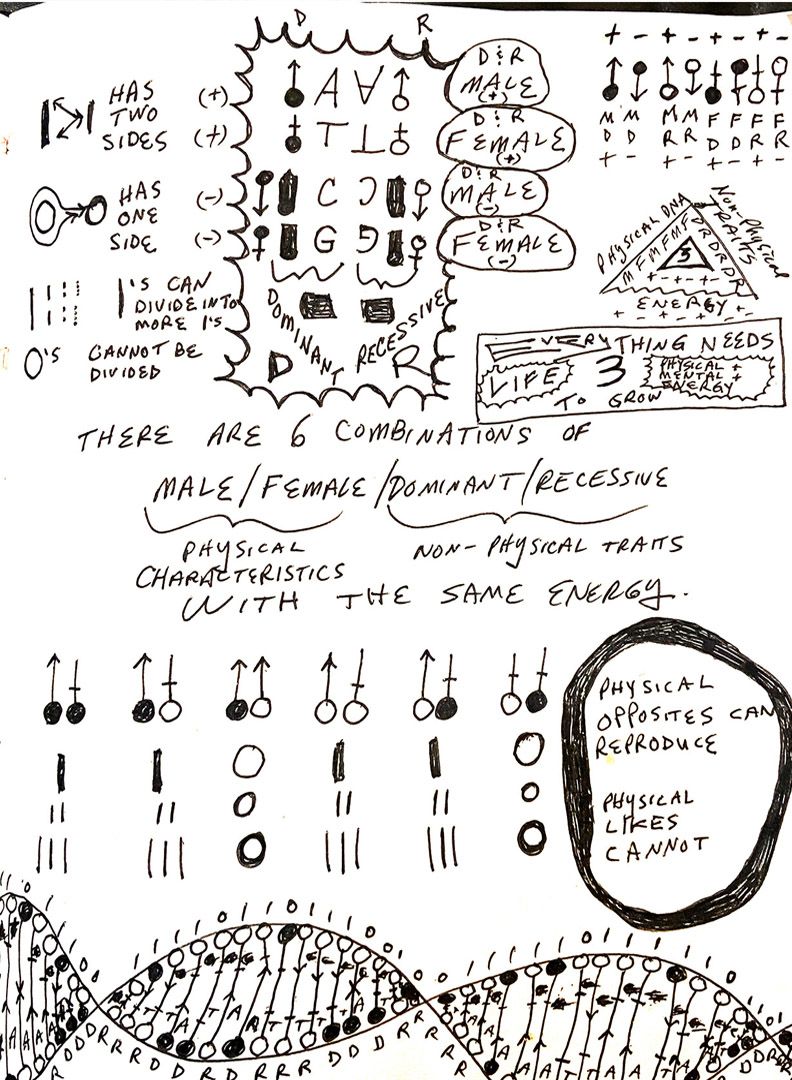 D R
HAS
TWO
SIDES
(+)
(+)
A A
T T
D & R
MALE
(+)
D & R
FEMALE
(+)
+ - + - + - + -
M M M M F F F F
D D R R D D R R
+ - + - + - + -
HAS
ONE
SIDE
(-)
(-)
C C
G G
D & R
MALE
(-)
D & R
FEMALE
(-)
PHYSICAL DNA
NON-PHYSICAL
TRAITS
MFMFMF
DRDRDR
3
+-+-+-
ENERGY
+ - + - + - + -
1'S CAN
DIVIDE INTO
MORE 1'S
0'S CANNOT BE
DIVIDED
DOMINANT
RECESSIVE
D R
EVERYTHING NEEDS
LIFE 3 PHYSICAL +
MENTAL +
ENERGY
TO GROW
THERE ARE 6 COMBINATIONS OF
MALE/FEMALE/DOMINANT/RECESSIVE
PHYSICAL
CHARACTERISTICS
NON-PHYSICAL TRAITS
WITH THE SAME ENERGY.
PHYSICAL
OPPOSITES CAN
REPRODUCE
PHYSICAL
LIKES
CANNOT